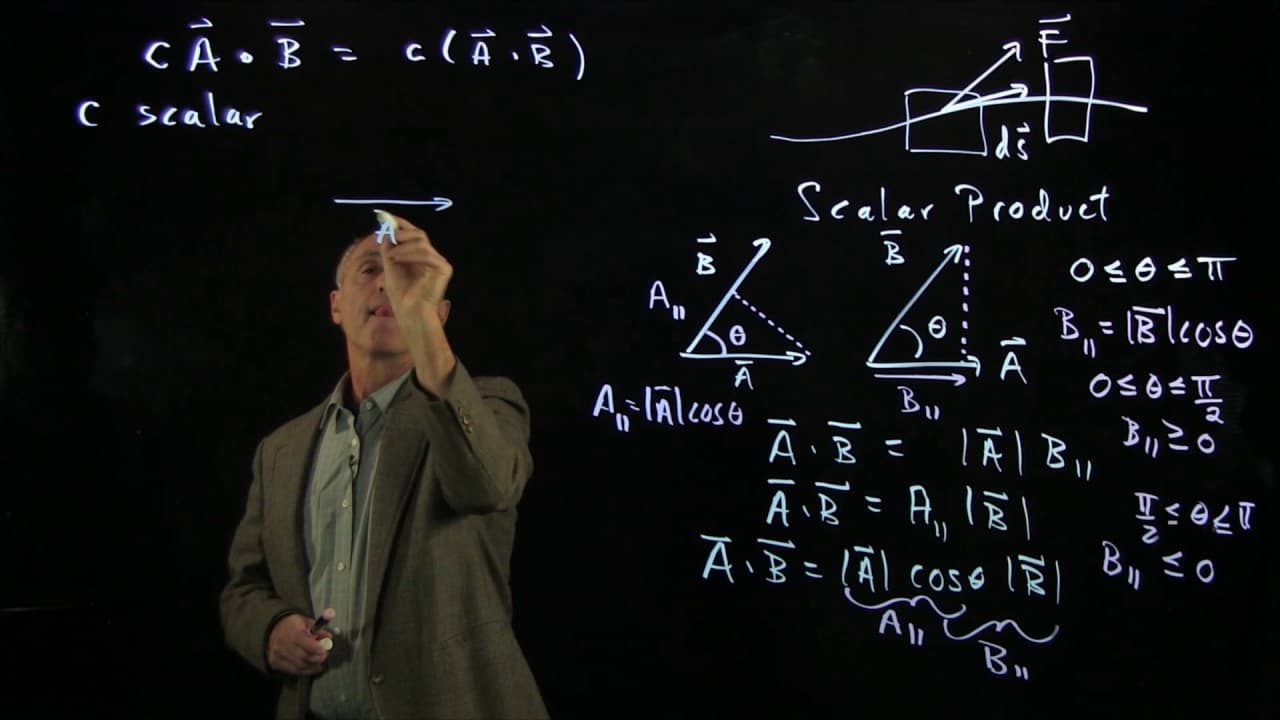 c A⃗ · B⃗ = c ( A⃗ · B⃗ )
c scalar
A
F⃗
ds⃗
Scalar Product
B⃗
A∥
θ
A⃗
A∥ = |A⃗| cosθ
B⃗
θ
A⃗
B∥
0 ≤ θ ≤ π
B∥ = |B⃗| cosθ
0 ≤ θ ≤ π/2
B∥ ≥ 0
π/2 ≤ θ ≤ π
B∥ ≤ 0
A⃗ · B⃗ = |A⃗| B∥
A⃗ · B⃗ = A∥ |B⃗|
A⃗ · B⃗ = |A⃗| cosθ |B⃗|
A∥
B∥